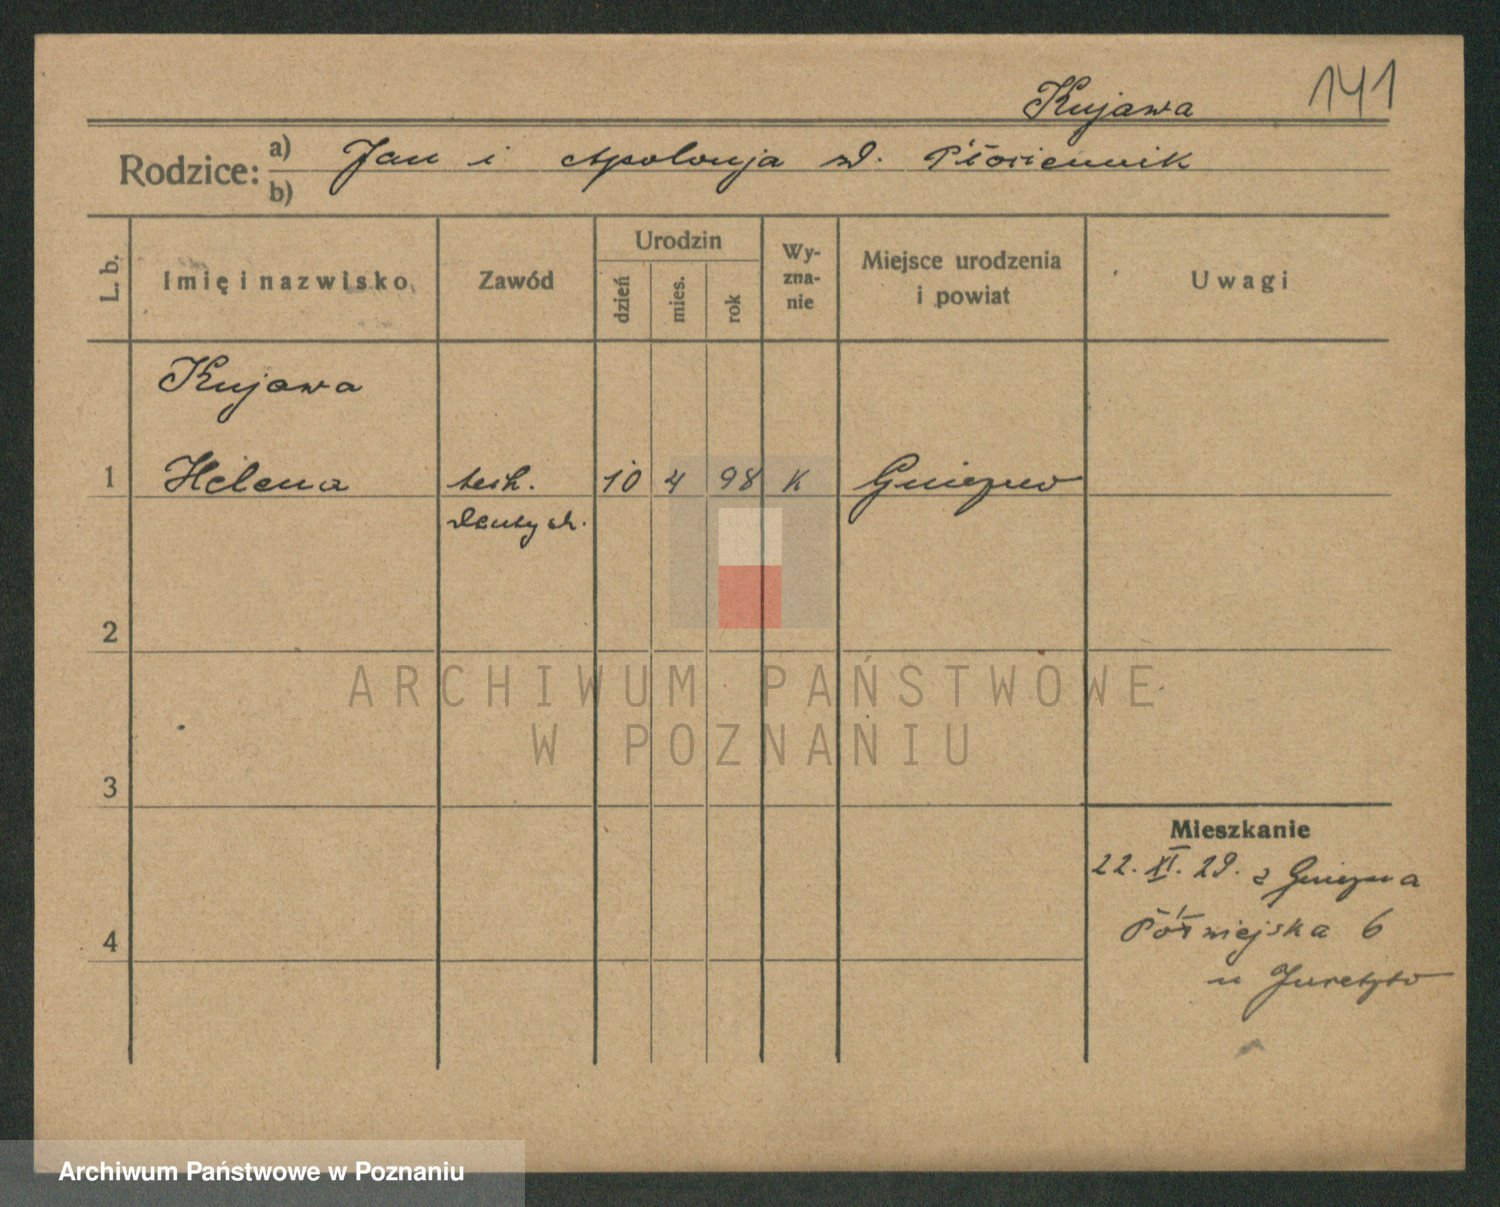 Kujawa 141
Rodzice: a) Jan i Apolonja zd. Płóciennik
b)
L. b. Imię i nazwisko Zawód Urodzin dzień mies. rok Wy-zna-nie Miejsce urodzenia i powiat Uwagi
Kujawa
1 Helena tech. 10 4 98 K Gniezno
dentyst.
2
ARCHIWUM PAŃSTWOWE
W POZNANIU
3
Mieszkanie
22. XI. 29. z Gniezna
4 Półwiejska 6
u
Archiwum Państwowe w Poznaniu